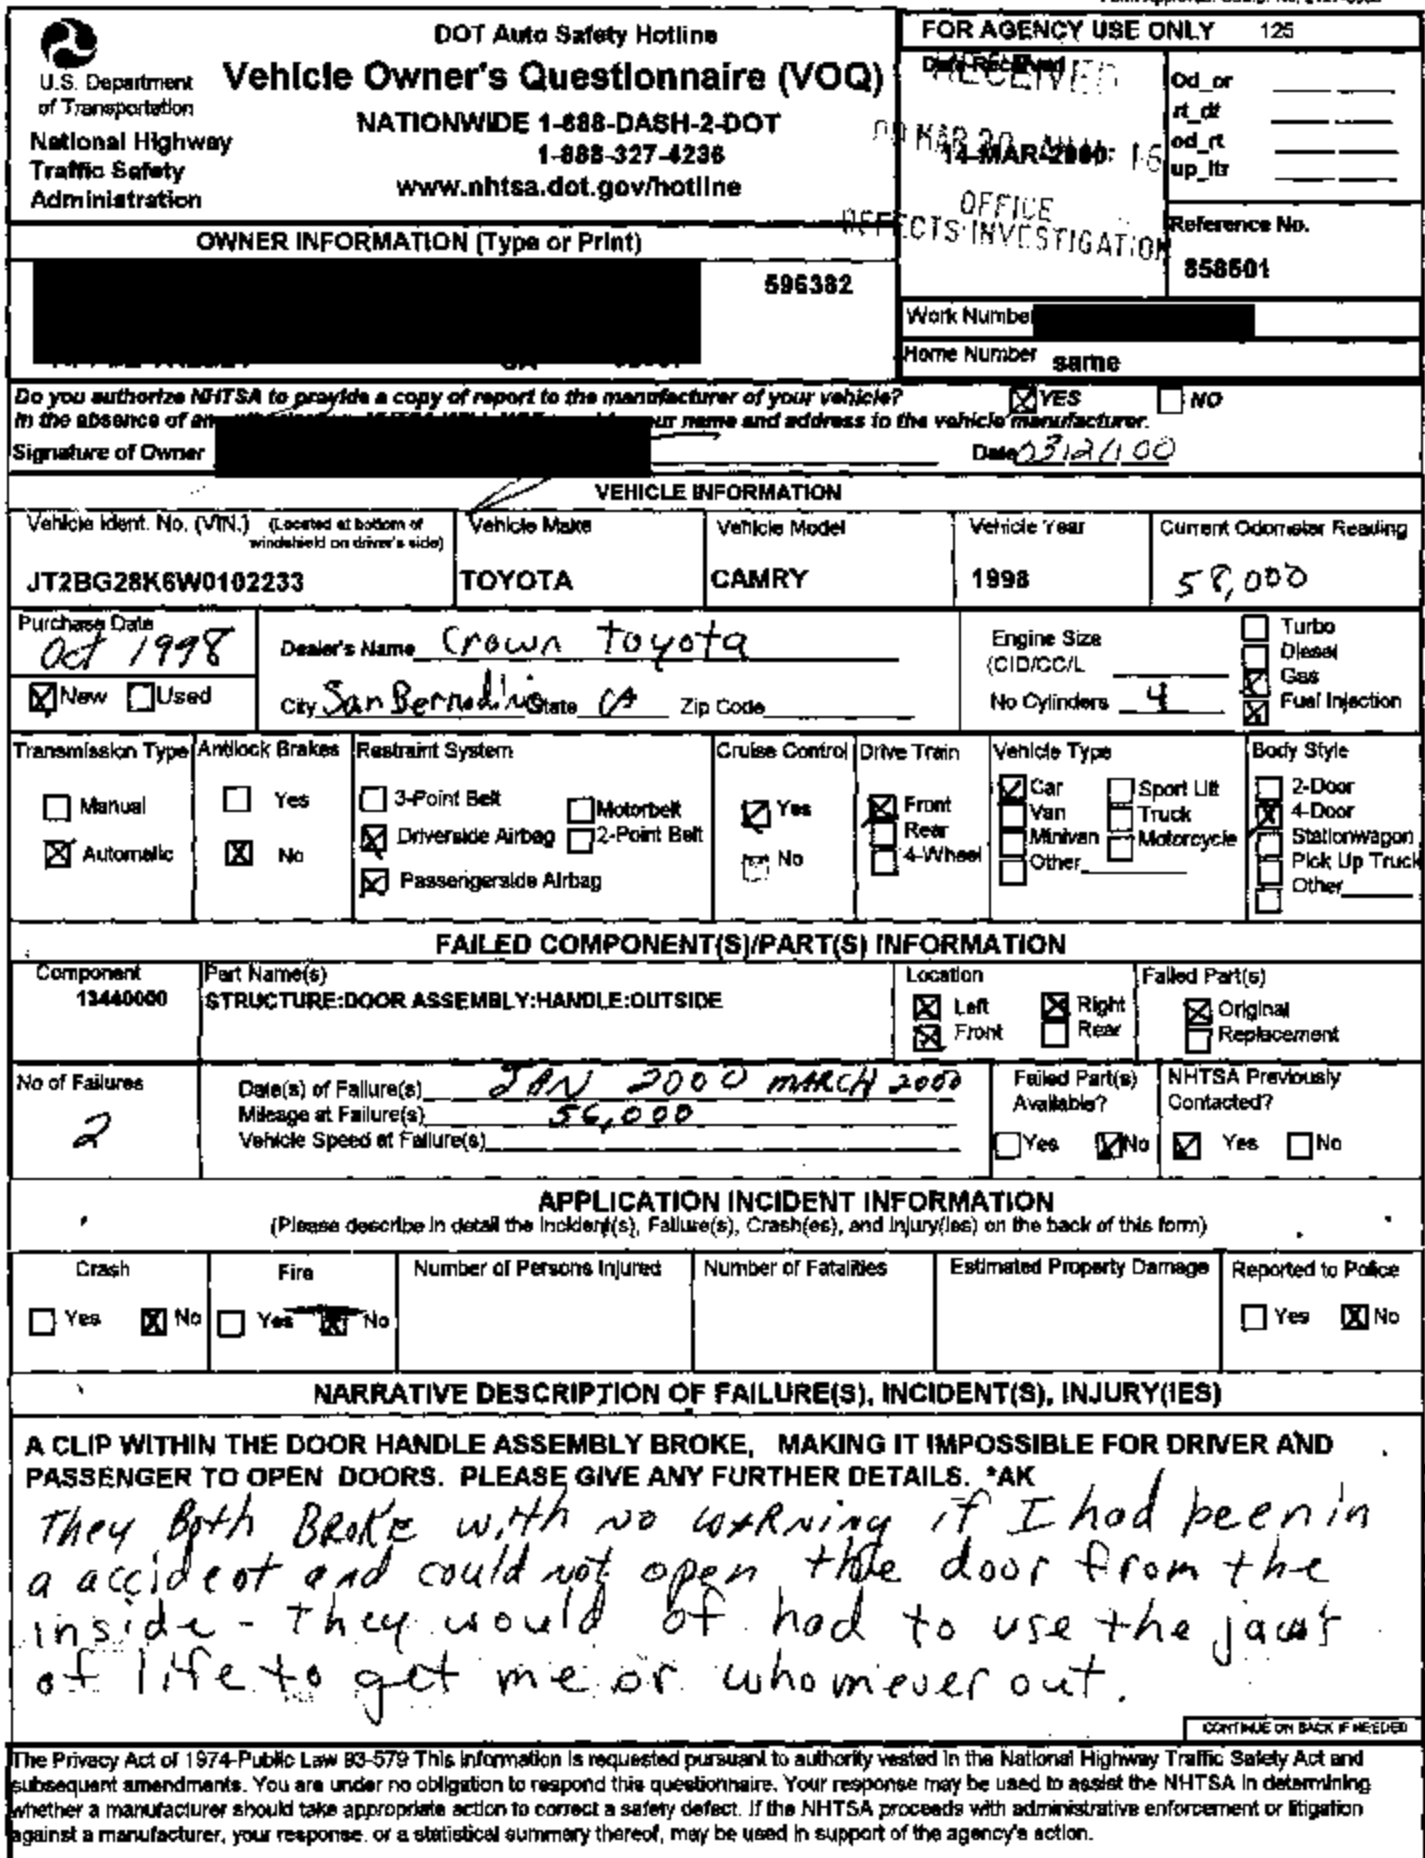 DOT Auto Safety Hotline
Vehicle Owner's Questionnaire (VOQ)
NATIONWIDE 1-888-DASH-2-DOT
1-888-327-4236
www.nhtsa.dot.gov/hotline
U.S. Department
of Transportation
National Highway
Traffic Safety
Administration
FOR AGENCY USE ONLY 125
Date Received
RECEIVED
14-MAR-2000
OFFICE
DEFECTS INVESTIGATION
Od_or
rt_dt
od_rt
up_ltr
Reference No.
858501
OWNER INFORMATION (Type or Print)
596382
Work Number
Home Number same
Do you authorize NHTSA to provide a copy of report to the manufacturer of your vehicle? YES NO
In the absence of an
our name and address to the vehicle manufacturer.
Signature of Owner
Date 03/21/00
VEHICLE INFORMATION
Vehicle Ident. No. (VIN.) (Located at bottom of
windshield on driver's side)
JT2BG28K6W0102233
Vehicle Make
TOYOTA
Vehicle Model
CAMRY
Vehicle Year
1998
Current Odometer Reading
58,000
Purchase Date
Oct 1998
New Used
Dealer's Name Crown Toyota
City San Bernadino State CA Zip Code
Engine Size
(CID/CC/L
No Cylinders 4
Turbo
Diesel
Gas
Fuel Injection
Transmission Type
Manual
Automatic
Antilock Brakes
Yes
No
Restraint System
3-Point Belt
Motorbelt
Driverside Airbag
2-Point Belt
Passengerside Airbag
Cruise Control
Yes
No
Drive Train
Front
Rear
4-Wheel
Vehicle Type
Car
Van
Minivan
Other
Sport Util
Truck
Motorcycle
Body Style
2-Door
4-Door
Stationwagon
Pick Up Truck
Other
FAILED COMPONENT(S)/PART(S) INFORMATION
Component
13440000
Part Name(s)
STRUCTURE:DOOR ASSEMBLY:HANDLE:OUTSIDE
Location
Left Right
Front Rear
Failed Part(s)
Original
Replacement
No of Failures
2
Date(s) of Failure(s) JAN 2000 MARCH 2000
Mileage at Failure(s) 56,000
Vehicle Speed at Failure(s)
Failed Part(s)
Available?
Yes No
NHTSA Previously
Contacted?
Yes No
APPLICATION INCIDENT INFORMATION
(Please describe in detail the Incident(s), Failure(s), Crash(es), and Injury(ies) on the back of this form)
Crash
Yes No
Fire
Yes No
Number of Persons Injured
Number of Fatalities
Estimated Property Damage
Reported to Police
Yes No
NARRATIVE DESCRIPTION OF FAILURE(S), INCIDENT(S), INJURY(IES)
A CLIP WITHIN THE DOOR HANDLE ASSEMBLY BROKE, MAKING IT IMPOSSIBLE FOR DRIVER AND
PASSENGER TO OPEN DOORS. PLEASE GIVE ANY FURTHER DETAILS. *AK
They Both BROKE with NO WARNing if I had been in
a accideot and could not open the door from the
inside - they would of had to use the jaws
of life to get me or whomever out.
CONTINUE ON BACK IF NEEDED
The Privacy Act of 1974-Public Law 93-579 This information is requested pursuant to authority vested in the National Highway Traffic Safety Act and
subsequent amendments. You are under no obligation to respond this questionnaire. Your response may be used to assist the NHTSA in determining
whether a manufacturer should take appropriate action to correct a safety defect. If the NHTSA proceeds with administrative enforcement or litigation
against a manufacturer, your response, or a statistical summary thereof, may be used in support of the agency's action.